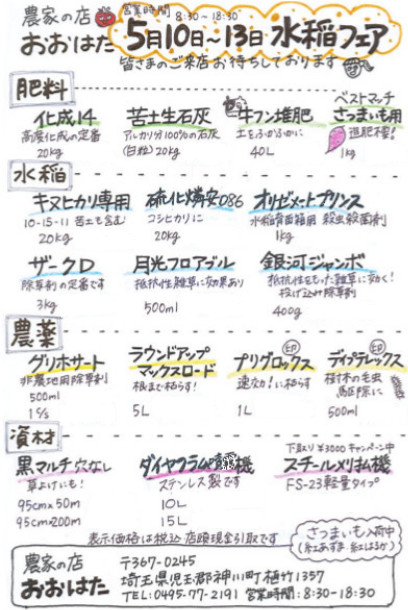 農家の店
おおはた
営業時間 8:30~18:30
5月10日~13日 水稲フェア
皆さまのご来店お待ちしております
肥料
化成14
高度化成の定番
20kg
苦土生石灰
アルカリ分100%の石灰
(白粒)20kg
牛フン堆肥
土をふかふかに
40L
ベストマッチ
さつまいも用
追肥不要!
1kg
水稲
キヌヒカリ専用
10-15-11 苦土も含む
20kg
硫化燐安086
コシヒカリに
20kg
オリゼメートプリンス
水稲育苗箱用 殺虫殺菌剤
1kg
ザークD
除草剤の定番です
3kg
月光フロアブル
抵抗性雑草に効果あり
500ml
銀河ジャンボ
抵抗性をもった雑草に効く!
投げ込み除草剤
400g
農薬
グリホサート
非農地用除草剤
500ml
ラウンドアップ
マックスロード
根まで枯らす!
5L
プリグロックス
速効!に枯らす
1L
ディプテレックス
樹木の毛虫
駆除に
500ml
資材
黒マルチ穴なし
草よけにも!
95cm×50m
95cm×200m
ダイヤクラム
機
ステンレス製です
10L
15L
下取り¥3000キャンペーン中
スチールメリ払機
FS-23軽量タイプ
表示価格は税込 店頭現金引取です
さつまいも入荷中
(紅あずま 紅はるか)
農家の店
おおはた
〒367-0245
埼玉県児玉郡神川町植竹1357
TEL:0495-77-2191 営業時間:8:30-18:30